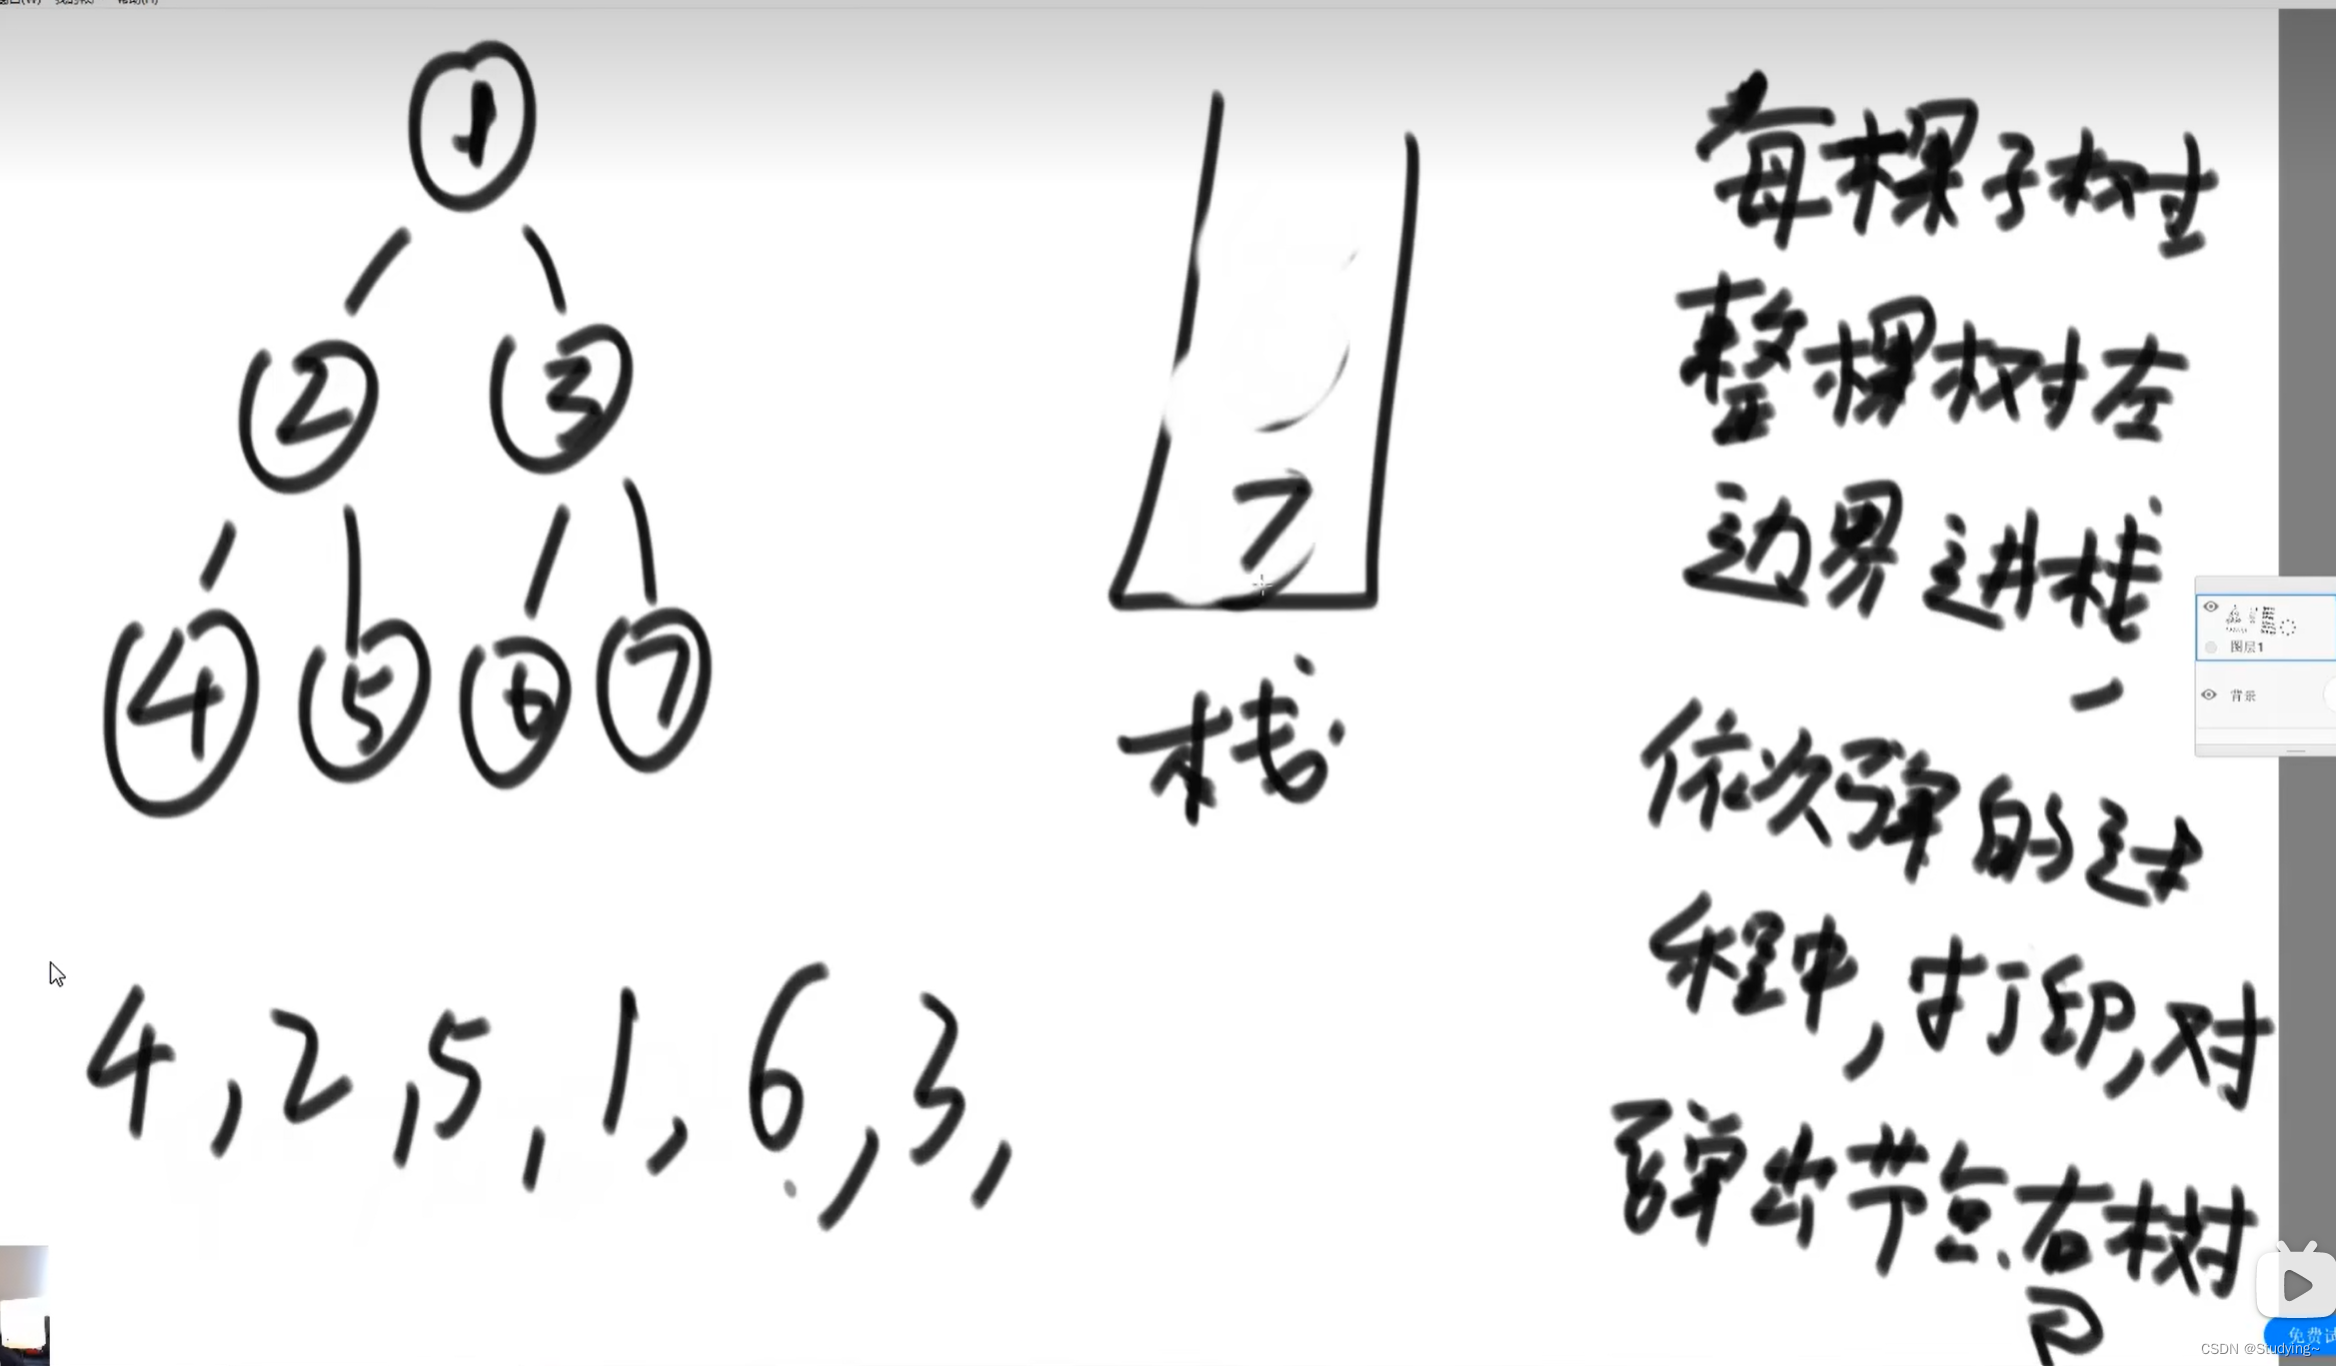 1
2 3
4 5 6 7
7
栈
4, 2, 5, 1, 6, 3,
每棵子树
整棵树左
边界进栈
依次弹的过
程中,打印,对
弹出节点右树
图层1
背景
免费试
CSDN @Studying~